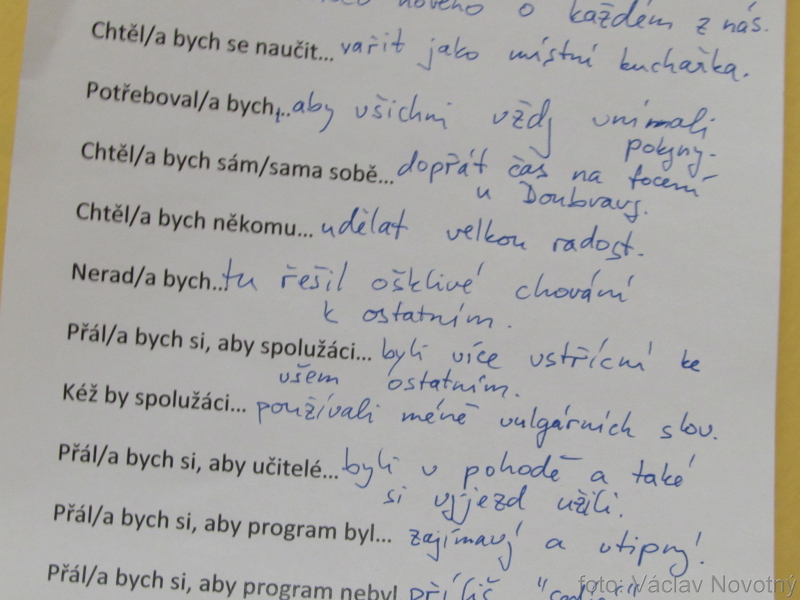 nového o každém z nás.
Chtěl/a bych se naučit... vařit jako místní kuchařka.
Potřeboval/a bych,.. aby všichni vždy vnímali
pokyny.
Chtěl/a bych sám/sama sobě... dopřát čas na focení
u Doubravy.
Chtěl/a bych někomu... udělat velkou radost.
Nerad/a bych... tu řešil ošklivé chování
k ostatním.
Přál/a bych si, aby spolužáci... byli více vstřícní ke
všem ostatním.
Kéž by spolužáci... používali méně vulgárních slov.
Přál/a bych si, aby učitelé... byli v pohodě a také
si výjezd užili.
Přál/a bych si, aby program byl... zajímavý a vtipný!
Přál/a bych si, aby program nebyl příliš
foto: Václav Novotný